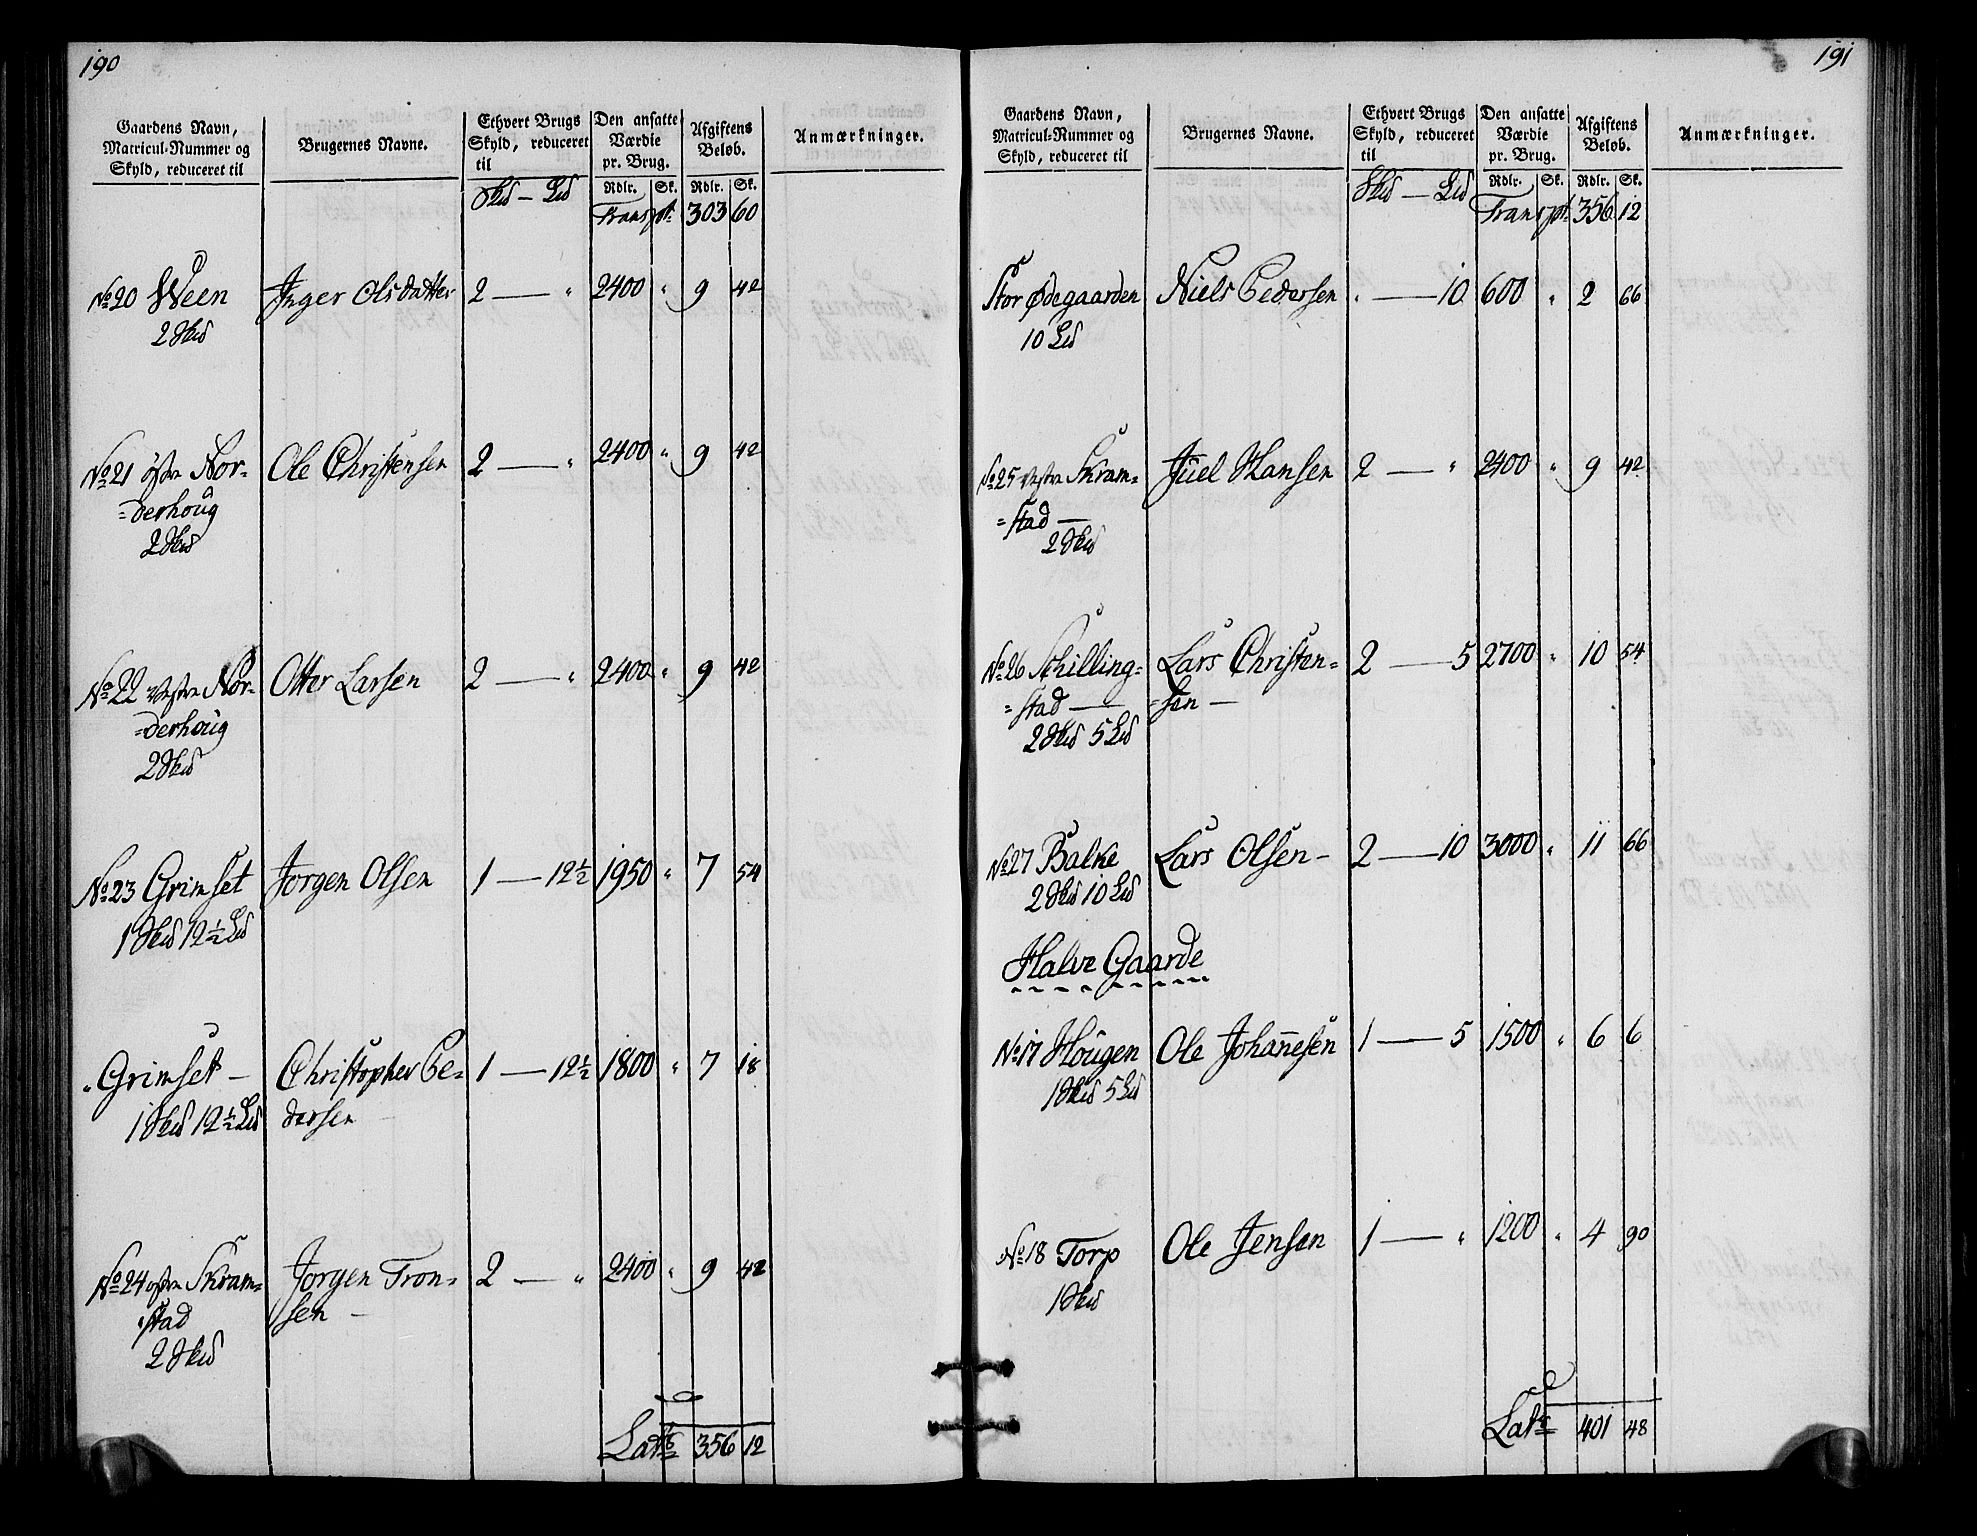 190
Gaardens Navn, Matricul-Nummer og Skyld, reduceret til
Brugernes Navne.
Ethvert Brugs Skyld, reduceret til
Den ansatte Værdie pr. Brug.
Afgiftens Beløb.
Anmærkninger.
Skd — Ld Rdlr. Sk. Rdlr. Sk.
Transpt. 303 60
No 20 Ween Inger Olsdatter 2 — " 2400 " 9 42
2 Skd
No 21 østre Nor- Ole Christensen 2 — " 2400 " 9 42
=derhoug
2 Skd
No 22 vestre Nor- Otter Larsen 2 — " 2400 " 9 42
=derhoug
2 Skd
No 23 Grimset Jorgen Olsen 1 — 12½ 1950 " 7 54
1 Skd 12½ Ld
" Grimset — Christopher Pe= 1 — 12½ 1800 " 7 18
1 Skd 12½ Ld dersen —
No 24 østre Skram= Jorgen Tron= 2 — " 2400 " 9 42
=stad sen —
2 Skd
Lats 356 12
191
Gaardens Navn, Matricul-Nummer og Skyld, reduceret til
Brugernes Navne.
Ethvert Brugs Skyld, reduceret til
Den ansatte Værdie pr. Brug.
Afgiftens Beløb.
Anmærkninger.
Skd — Ld Rdlr. Sk. Rdlr. Sk.
Transpt. 356 12
Stor Ødegaarden Niels Pedersen " — 10 600 " 2 66
10 Ld
No 25 vestre Skram= Juel Hansen 2 — " 2400 " 9 42
=stad —
2 Skd
No 26 Schilling= Lars Christen= 2 — 5 2700 " 10 54
=stad — =sen —
2 Skd 5 Ld
No 27 Balke Lars Olsen — 2 — 10 3000 " 11 66
2 Skd 10 Ld
Halve Gaarde
No 17 Hougen Ole Johanesen 1 — 5 1500 " 6 6
1 Skd 5 Ld
No 18 Torp Ole Jensen 1 — " 1200 " 4 90
1 Skd
Lats 401 48